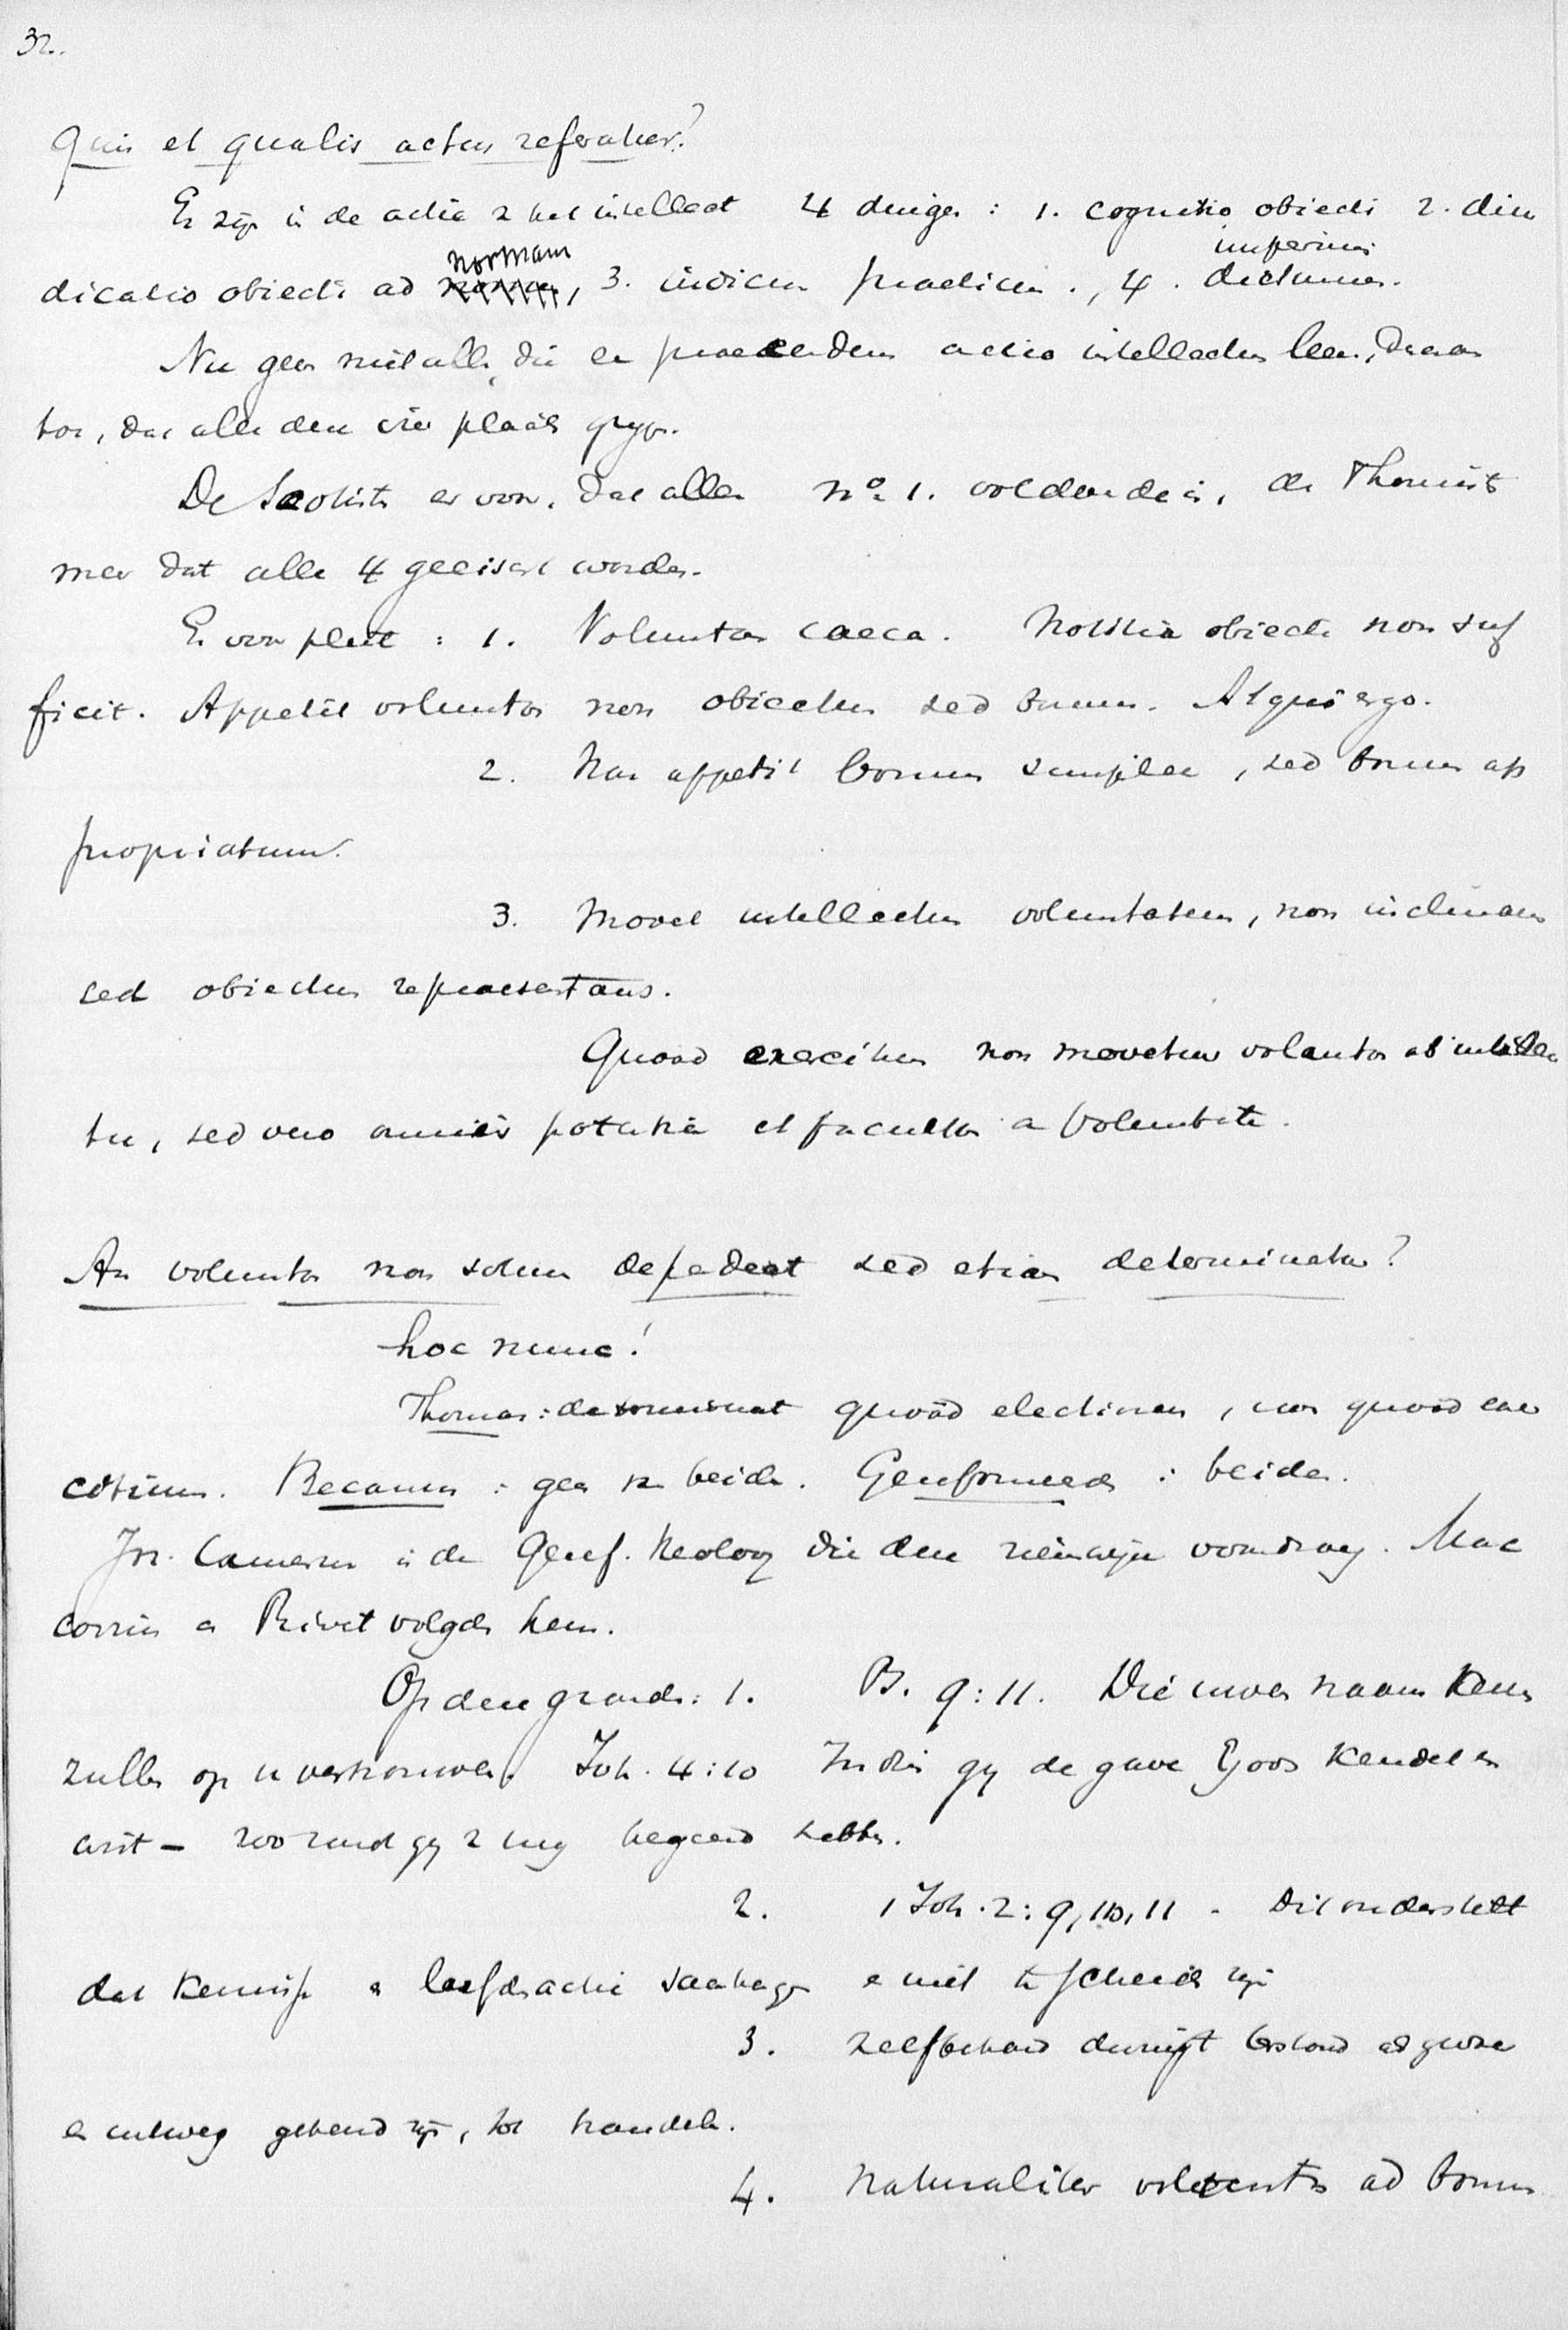 32.
Quis et qualis actus referatur?
Er zijn in de actie v het intellect 4 dingen: 1. cognitio obiecti 2. diiu
normam imperium
dicatio obiecti ad , 3. iudicium practicum., 4. dictamen.
Nu geen niet alle, die en praecedens actio intellectus leer,
toe, dat alle deze vier plaats gryp.
De Scotisten er voor, dat alleen no 1. voldoende is, de Thomist
mee dat alle 4 geeischt worden.
Er voor pleit: 1. Voluntas caeca. Notitia obiecti non suf
ficit. Appetit voluntas non obiectum sed bonum. Atqui ergo.
2. Non appetit bonum simplex, sed bonum ap
propriatum.
3. Movet intellectus voluntatem, non inclinans
sed obiectum repraesentans.
Quoad exercitium non movetur voluntas ab intellec
tu, sed vero omnis potentia et facultas a voluntate.
An voluntas non solum dependeat sed etiam determinatur?
hoc nunc!
Thomas: determinat quoad electionem, non quoad exer
citium. Becanus: geen v beide. Gereformeerden: beide.
Jn. Cameron is de Geref. theoloog die deze zienswijze voordroeg. Mac
covius en Rivet volgden hem.
Op deze gronden: 1. Ps. 9:11. Die uwen naam kennen
zullen op u vertrouwen. Joh. 4:10 Indien gij de gave Gods kendet en
wist — zoo zoudt gij v mij begeerd hebben.
2. 1 Joh. 2:9, 10, 11 - Dit onderstelt
dat kennis en liefdesactie saamhangen en niet te scheiden zijn
3. Zelfbehoud dwingt terstond als gevaar
en uitweg gekend zijn, tot handelen.
4. Naturaliter voluntas ad bonum